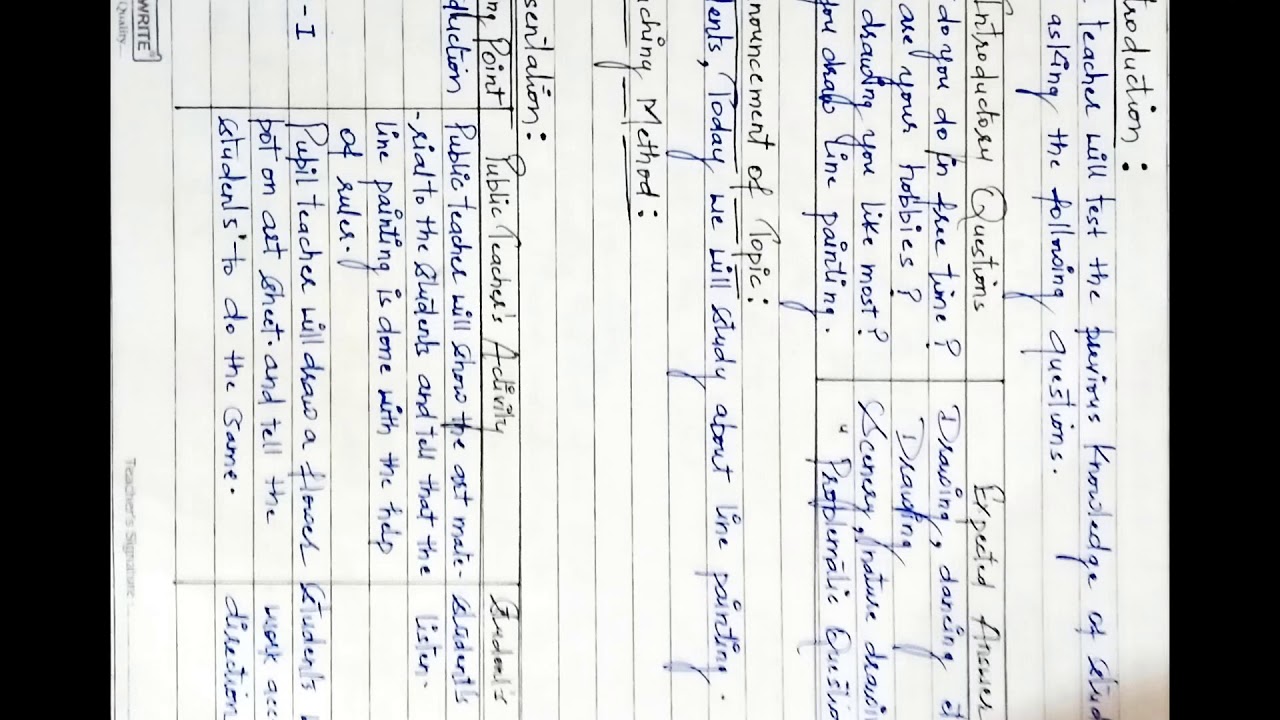 troduction :
teacher will test the previous knowledge of stud
asking the following questions.
Introductory Questions Expected Answer
do you do in free time? Drawing, dancing et
are your hobbies? Drawing
drawing you like most? Scenery, nature drawin
you draw line painting. " Problematic Questio
nouncement of Topic:
dents, Today we will study about line painting.
aching Method:
sentation:
ng Point Public Teacher's Activity Student's
duction Public teacher will show the art mate- students
-rial to the students and tell that the listen.
line painting is done with the help
of ruler.
-I Pupil teacher will draw a flower Students
pot on art sheet. and tell the work acc
students' to do the same. direction
WRITE
Quality
Teacher's Signature